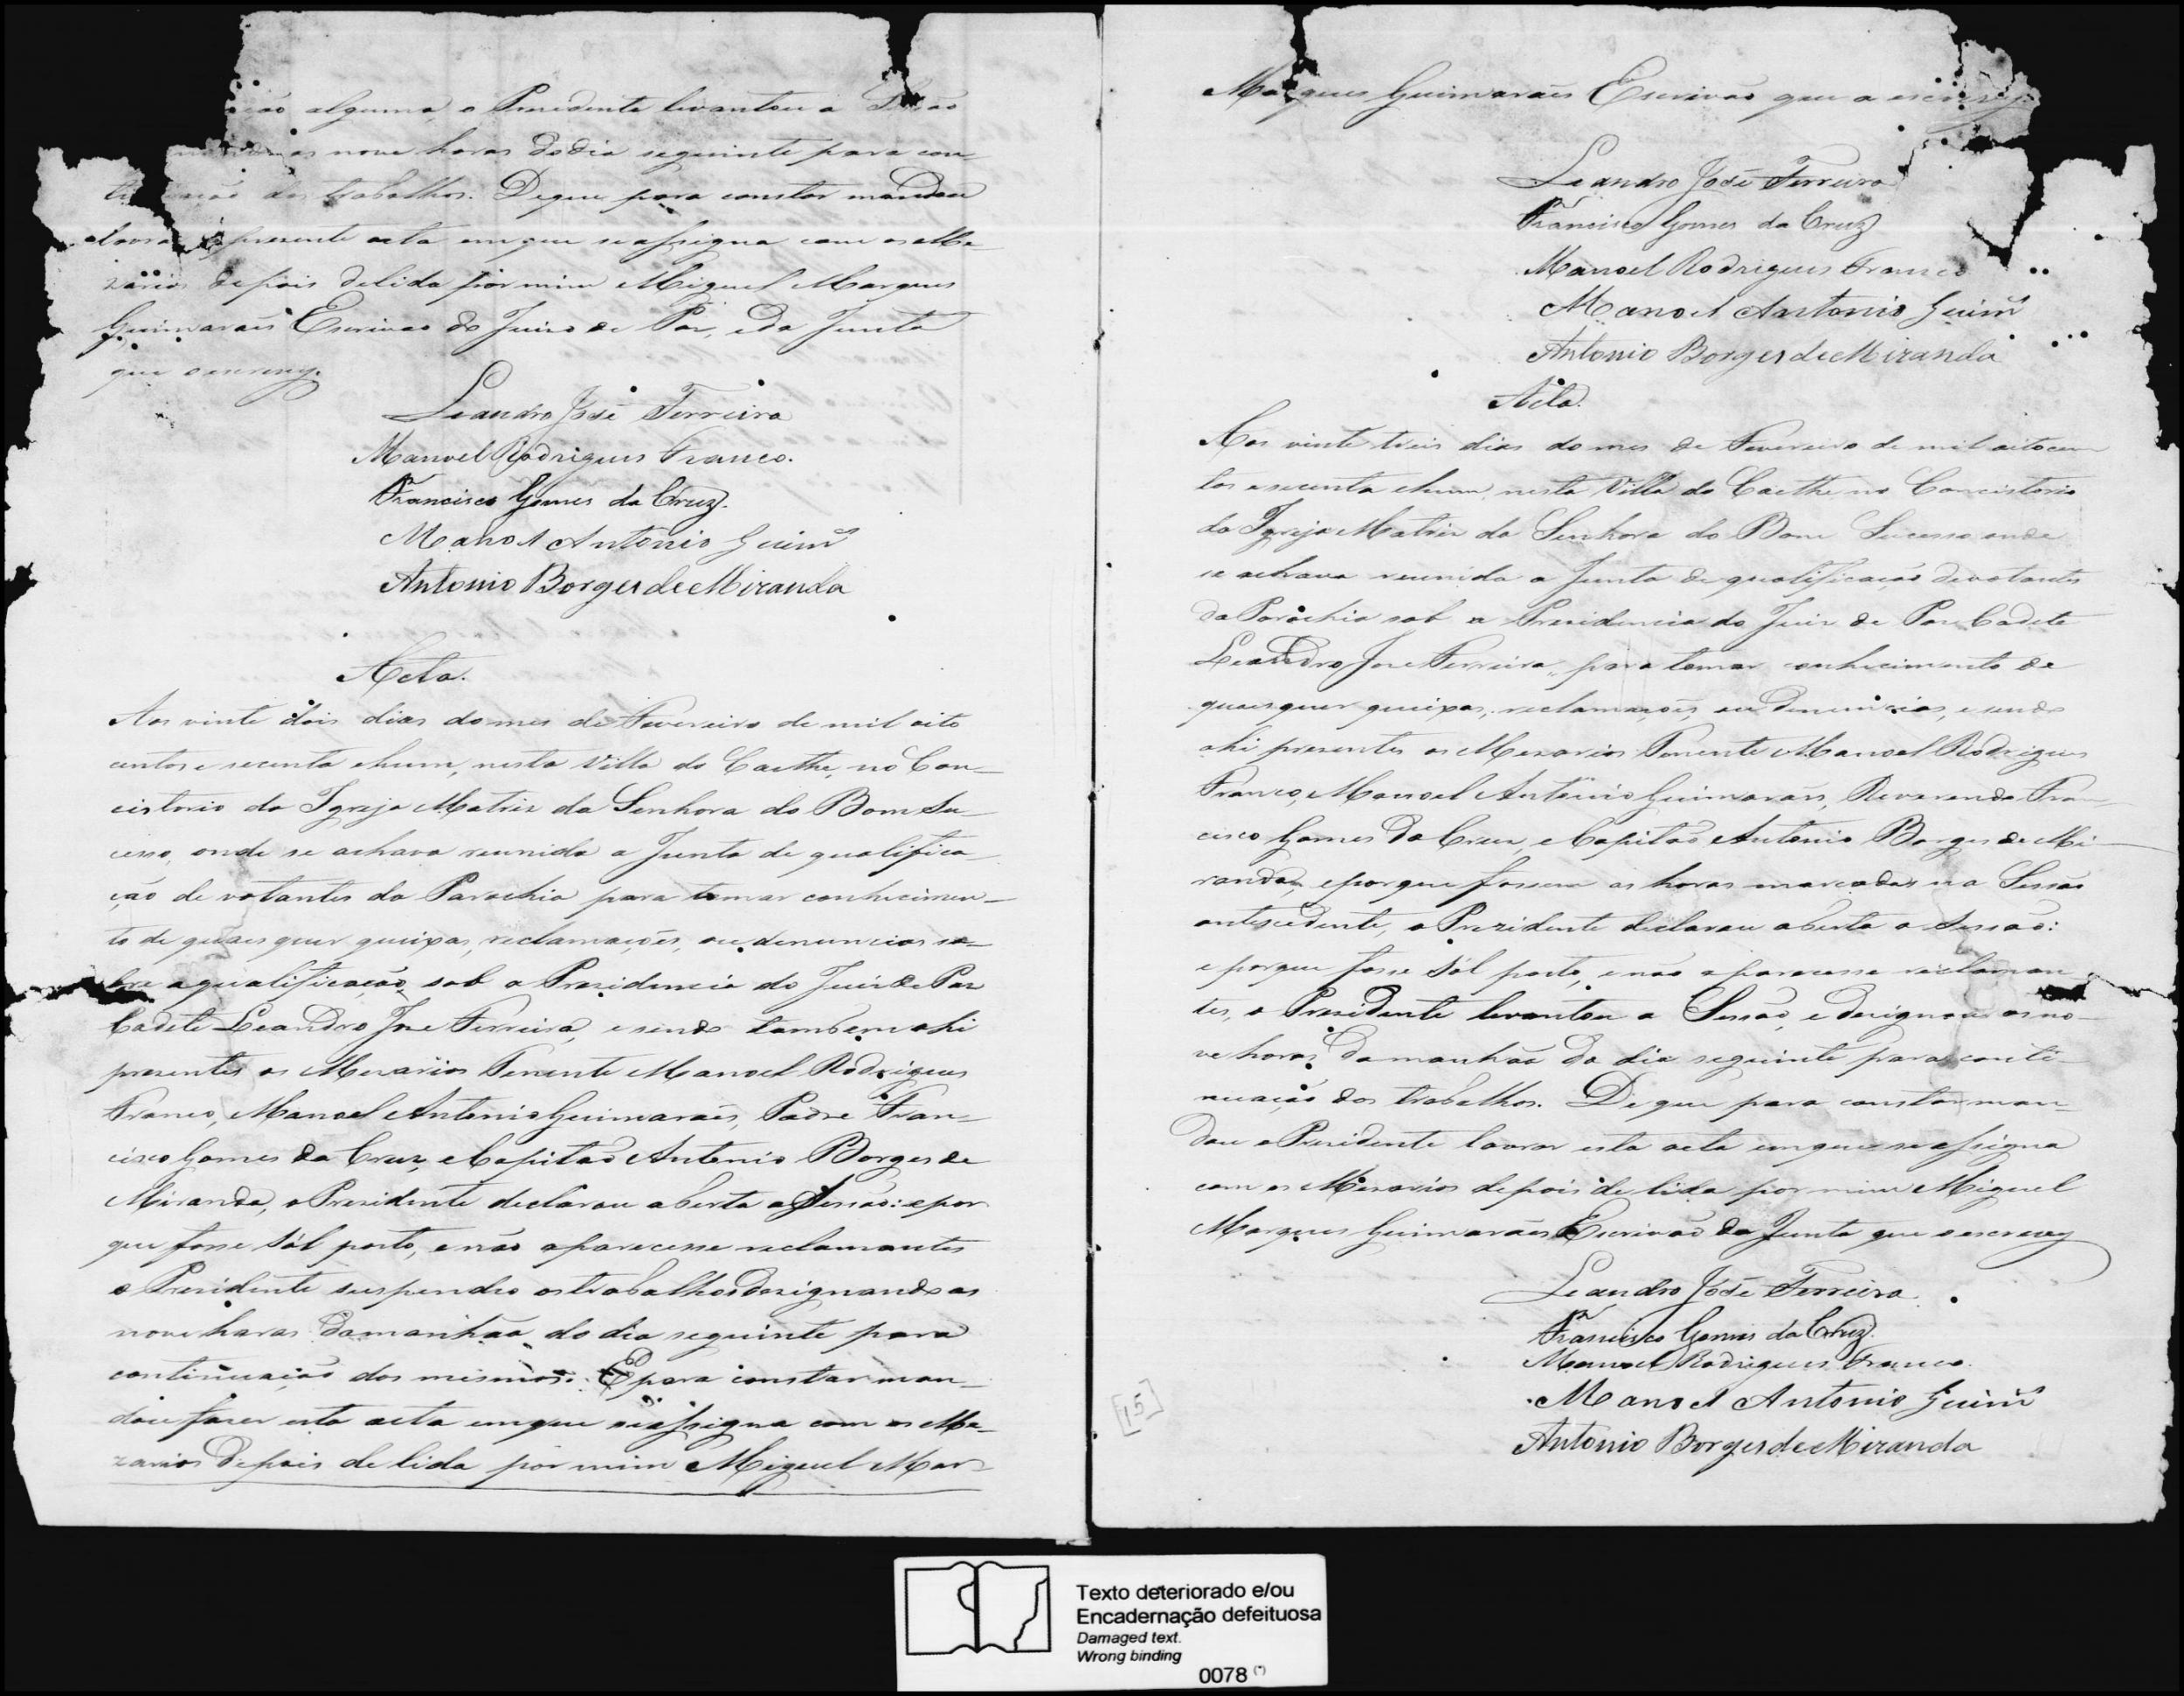 ção alguma, o Presidente levantou a Sessão
as nove horas do dia seguinte para con-
dos trabalhos. De que para constar mandou
lavrar a presente acta em que se assigna com os Me-
zarios depois de lida por mim Miguel Marques
Guimarães Escrivão do Juizo de Paz, e da Junta
que o escrevy.
Leandro José Ferreira
Manoel Rodrigues Franco.
Francisco Gomes da Cruz.
Manoel Antonio Guimes
Antonio Borges de Miranda
Acta.
Aos vinte dois dias do mes de Fevereiro de mil oito
centos e secenta e hum, nesta Villa do Caethe, no Con-
cistorio da Igreja Matriz da Senhora do Bom Su-
cesso, onde se achava reunida a Junta de qualifica-
ção de votantes da Parochia para tomar conhecimen-
to de quaes quer queixas, reclamações, ou denuncias so-
bre a qualificação, sob a Presidencia do Juiz de Paz
Cadete Leandro Jose Ferreira, e sendo tambem ahi
presentes os Mezarios Tenente Manoel Rodrigues
Franco, Manoel Antonio Guimarães, Padre Fran-
cisco Gomes da Cruz, e Capitão Antonio Borges de
Miranda, o Presidente declarou aberta a Sessão: e por
que fosse Sól posto, e não aparecesse reclamantes
o Presidente suspendeo os trabalhos designando as
nove horas da manhãa do dia seguinte para
continuação dos mesmos. E para constar man-
dou fazer esta acta em que se assigna com os Me-
zarios depois de lida por mim Miguel Mar-
Marques Guimarães Escrivão que a escrevy.
Leandro José Ferreira
Francisco Gomes da Cruz
Manoel Rodrigues Franco
Manoel Antonio Guimes
Antonio Borges de Miranda
Acta.
Aos vinte treis dias do mes de Fevereiro de mil oitocen
tos e secenta e hum, nesta Villa do Caethe no Concistorio
da Igreja Matriz da Senhora do Bom Sucesso onde
se achava reunida a Junta de qualificação de votantes
da Parochia sob a Presidencia do Juiz de Paz Cadete
Leandro Jose Ferreira, para tomar conhecimento de
quaesquer queixas, reclamações, ou denuncias, e sendo
ahi presentes os Mezarios Tenente Manoel Rodrigues
Franco, Manoel Antonio Guimarães, Reverendo Fran-
cisco Gomes da Cruz, e Capitão Antonio Borges de Mi-
randa, e porque fossem as horas marcadas na Sessão
antescedente, o Prezidente declarou aberta a Sessão:
e porque fosse Sól posto, e não aparecesse reclaman-
tes, o Presidente levantou a Sessão, e designou as no-
ve horas da manhãa do dia seguinte para conti-
nuação dos trabalhos. De que para constar man-
dou o Presidente lavrar esta acta em que se assigna
com os Mezarios depois de lida por mim Miguel
Marques Guimarães Escrivão da Junta que o escrevy
Leandro José Ferreira
Francisco Gomes da Cruz.
Manoel Rodrigues Franco
Manoel Antonio Guimes
Antonio Borges de Miranda
[15]
Texto deteriorado e/ou
Encadernação defeituosa
Damaged text.
Wrong binding
0078 (*)